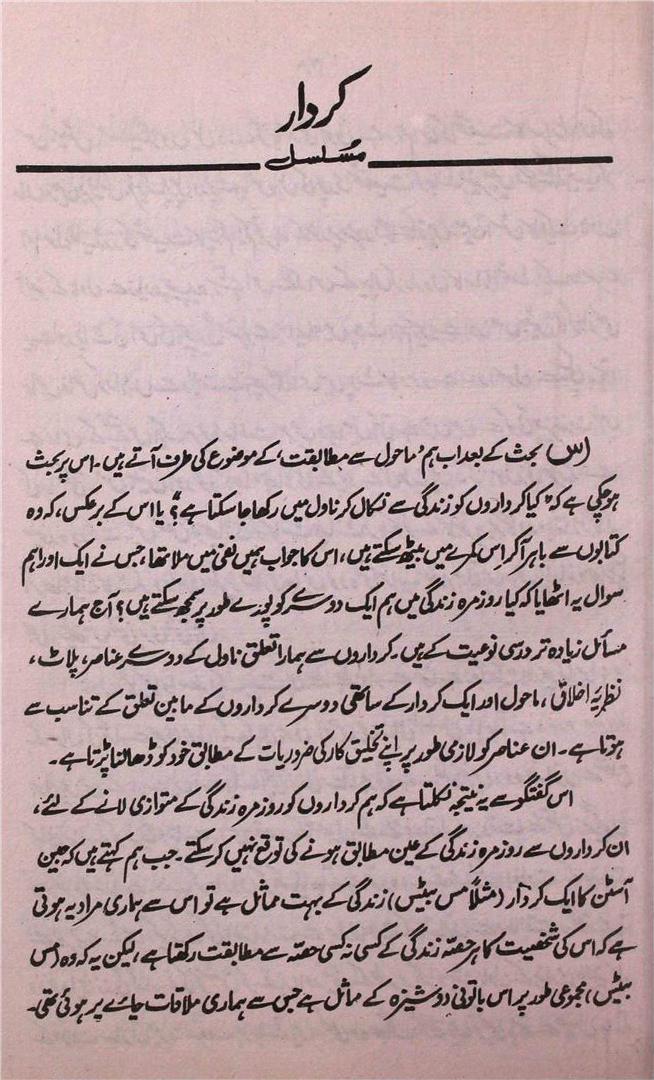 کردار
مسلسل
اس بحث کے بعد اب ہم ’ماحول سے مطابقت‘ کے موضوع کی طرف آتے ہیں۔ اس پر بحث
ہو چکی ہے کہ "کیا کرداروں کو زندگی سے نکال کر ناول میں رکھا جا سکتا ہے؟" یا اس کے برعکس، کہ وہ
کتابوں سے باہر آ کر اس کمرے میں بیٹھ سکتے ہیں، اس کا جواب ہمیں نفی میں ملا تھا، جس نے ایک اور اہم
سوال یہ اٹھایا کہ کیا روزمرہ زندگی میں ہم ایک دوسرے کو پورے طور پر سمجھ سکتے ہیں؟ آج ہمارے
مسائل زیادہ تر درسی نوعیت کے ہیں۔ کرداروں سے ہمارا تعلق ناول کے دوسرے عناصر، پلاٹ،
نظریۂ اخلاق، ماحول اور ایک کردار کے ساتھی دوسرے کرداروں کے مابین تعلق کے تناسب سے
ہوتا ہے۔ ان عناصر کو لازمی طور پر اپنے تخلیق کار کی ضروریات کے مطابق خود کو ڈھالنا پڑتا ہے۔
اس گفتگو سے یہ نتیجہ نکلتا ہے کہ ہم کرداروں کو روزمرہ زندگی کے متوازی لانے کے لئے،
ان کرداروں سے روزمرہ زندگی کے عین مطابق ہونے کی توقع نہیں کر سکتے۔ جب ہم کہتے ہیں کہ جین
آسٹن کا ایک کردار (مثلاً مس بیٹس) زندگی کے بہت مماثل ہے تو اس سے ہماری مراد یہ ہوتی
ہے کہ اس کی شخصیت کا ہر حصّہ زندگی کے کسی نہ کسی حصّہ سے مطابقت رکھتا ہے، لیکن یہ کہ وہ (مس
بیٹس) مجموعی طور پر اس باتونی دوشیزہ کے مماثل ہے جس سے ہماری ملاقات چائے پر ہوئی تھی۔